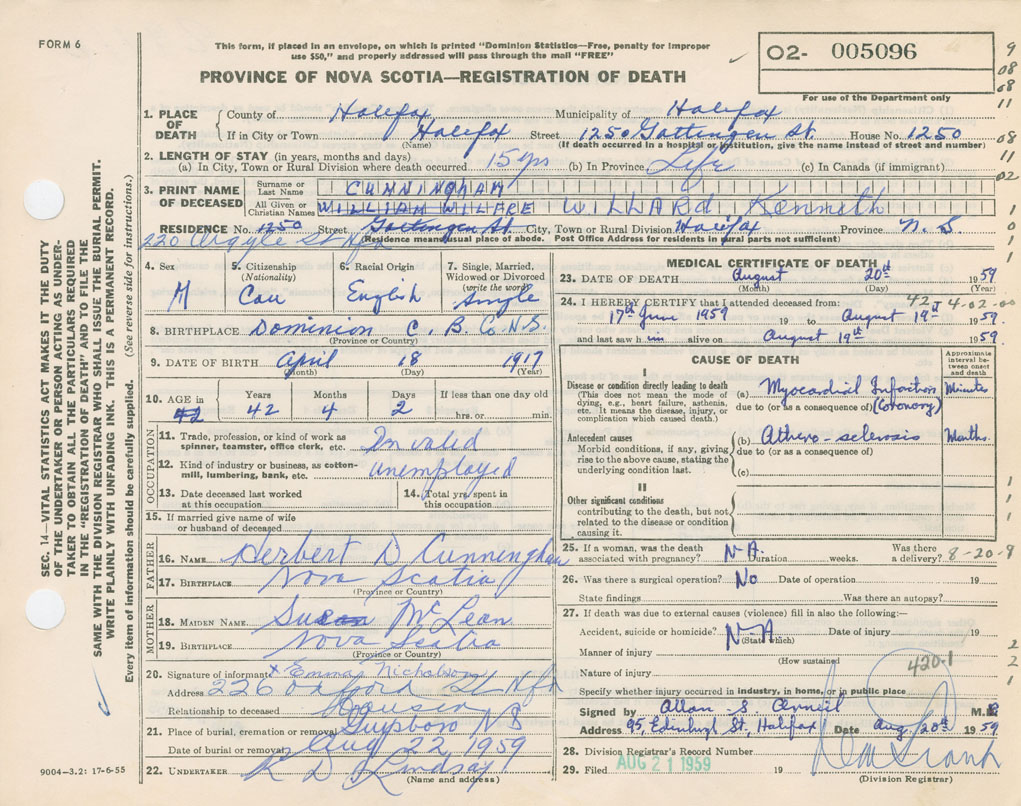 FORM 6
This form, if placed in an envelope, on which is printed "Dominion Statistics—Free, penalty for improper
use $50," and properly addressed will pass through the mail "FREE"
PROVINCE OF NOVA SCOTIA—REGISTRATION OF DEATH
02- 005096
For use of the Department only
9
08
08
11
08
11
02
1. PLACE OF DEATH
County of Halifax Municipality of Halifax
If in City or Town Halifax Street 1250 Gottingen St. House No. 1250
(Name) (If death occurred in a hospital or institution, give the name instead of street and number)
2. LENGTH OF STAY (in years, months and days)
(a) In City, Town or Rural Division where death occurred 15 yrs (b) In Province Life (c) In Canada (if immigrant)
3. PRINT NAME OF DECEASED
Surname or Last Name CUNNINGHAM
All Given or Christian Names WILLIAM WILFRE WILLARD Kenneth
RESIDENCE No. 1250 Street Gottingen St. City, Town or Rural Division Halifax Province N. S.
220 Argyle St Hfx
(Residence means usual place of abode. Post Office Address for residents in rural parts not sufficient)
4. Sex
M
5. Citizenship
(Nationality)
Can
6. Racial Origin
English
7. Single, Married,
Widowed or Divorced
(write the word)
Single
8. BIRTHPLACE Dominion C. B. Co. N.S.
(Province or Country)
9. DATE OF BIRTH April 18 1917
(Month) (Day) (Year)
10. AGE in 42
Years 42
Months 4
Days 2
If less than one day old
hrs. or min.
OCCUPATION
11. Trade, profession, or kind of work as
spinner, teamster, office clerk, etc. Invalid
12. Kind of industry or business, as cotton-
mill, lumbering, bank, etc. unemployed
13. Date deceased last worked
at this occupation
14. Total yrs. spent in
this occupation
15. If married give name of wife
or husband of deceased
FATHER
16. NAME Herbert D Cunningham
17. BIRTHPLACE Nova Scotia
(Province or Country)
MOTHER
18. MAIDEN NAME Susan McLean
19. BIRTHPLACE Nova Scotia
(Province or Country)
20. Signature of informant x Emma Nicholson
Address 226 Oxford St Hfx
Relationship to deceased Cousin
21. Place of burial, cremation or removal Guysboro N S
Date of burial or removal Aug 22, 1959
22. UNDERTAKER K D Lindsay
(Name and address)
9004—3.2: 17-6-55
MEDICAL CERTIFICATE OF DEATH
23. DATE OF DEATH August 20th 1959
(Month) (Day) (Year)
24. I HEREBY CERTIFY that I attended deceased from: 42 J 4-02-00
17th June 1959 19 to August 19th 1959
and last saw h im alive on August 19th 1959
CAUSE OF DEATH
Approximate
interval be-
tween onset
and death
I
Disease or condition directly leading to death
(This does not mean the mode of
dying, e.g., heart failure, asthenia,
etc. It means the disease, injury, or
complication which caused death.)
(a) Myocardial Infarction Minutes
due to (or as a consequence of) (Coronary)
Antecedent causes
Morbid conditions, if any, giving
rise to the above cause, stating the
underlying condition last.
(b) Athero-sclerosis Months.
due to (or as a consequence of)
(c)
II
Other significant conditions
contributing to the death, but not
related to the disease or condition
causing it.
25. If a woman, was the death
associated with pregnancy? N.A. Duration weeks. Was there
a delivery? 8-20-9
26. Was there a surgical operation? No Date of operation 19
State findings Was there an autopsy?
27. If death was due to external causes (violence) fill in also the following:—
Accident, suicide or homicide? N-A Date of injury 19
(State which)
Manner of injury
(How sustained)
420.1
Nature of injury
Specify whether injury occurred in industry, in home, or in public place
Signed by Allan S. M.D.
Address 95, Edinburgh St, Halifax Date Aug. 20th 1959
28. Division Registrar's Record Number
29. Filed AUG 21 1959 19
(Division Registrar)
SEC. 14—VITAL STATISTICS ACT MAKES IT THE DUTY
OF THE UNDERTAKER OR PERSON ACTING AS UNDER-
TAKER TO OBTAIN ALL THE PARTICULARS REQUIRED
IN THE "REGISTRATION OF DEATH" AND TO FILE THE
SAME WITH THE DIVISION REGISTRAR WHO SHALL ISSUE THE BURIAL PERMIT.
WRITE PLAINLY WITH UNFADING INK. THIS IS A PERMANENT RECORD.
Every item of information should be carefully supplied. (See reverse side for instructions.)